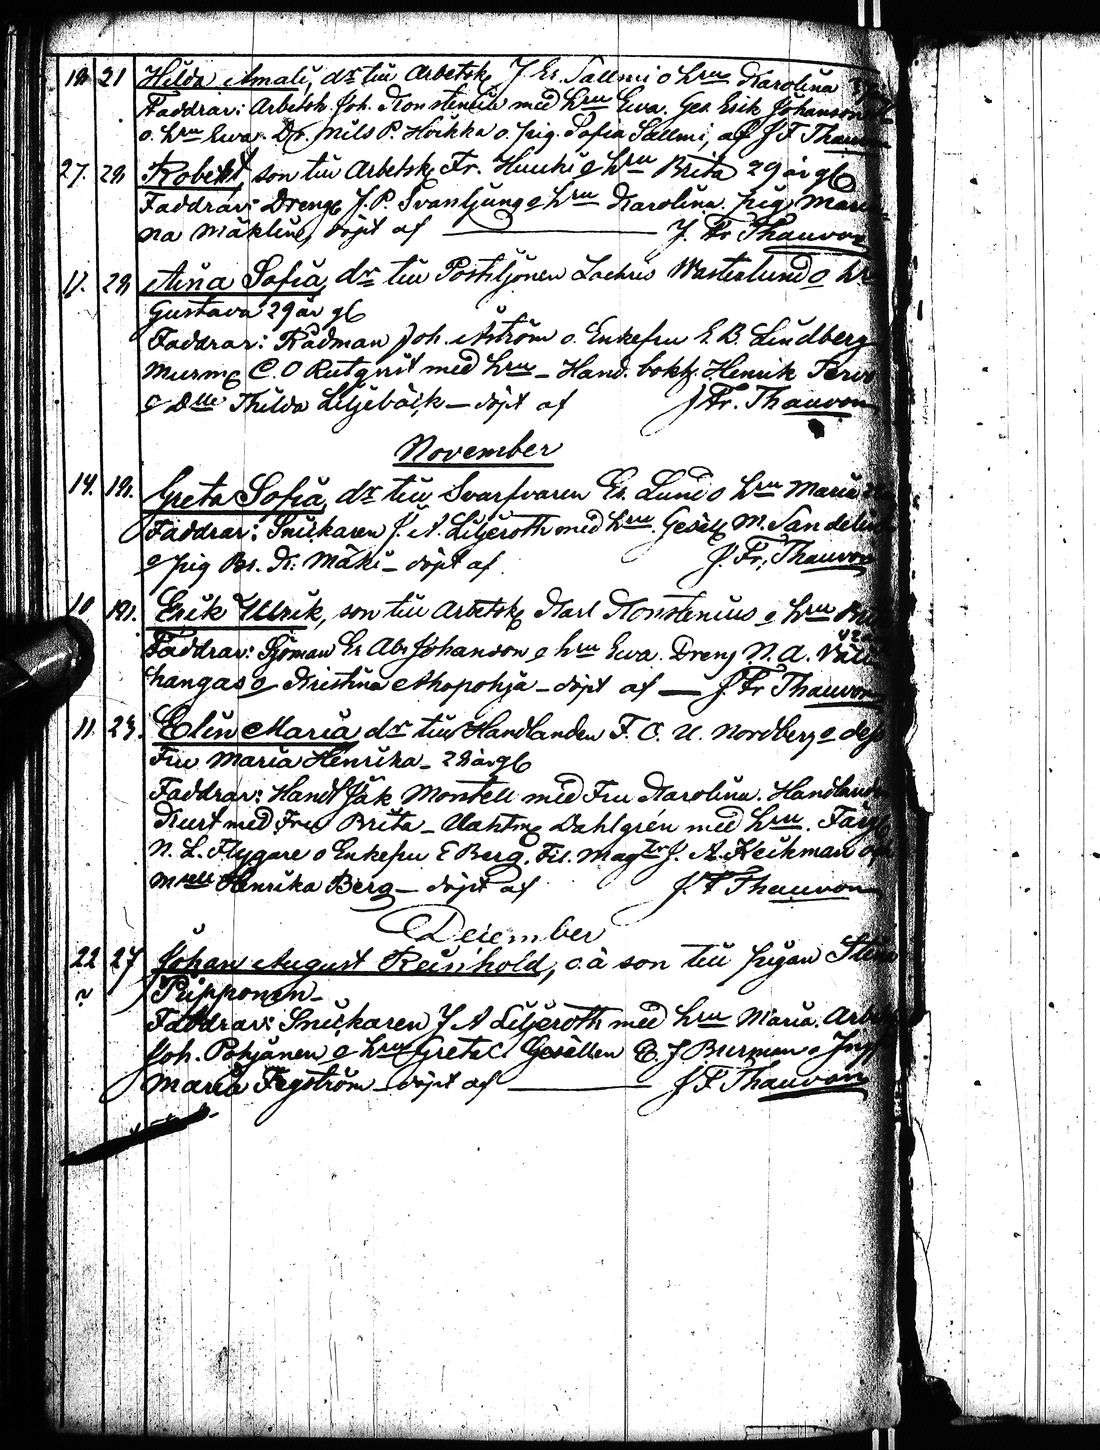 18 21 Hilda Amali, dr till Arbetsk J. Er. Sallmi o hru Karolina
Faddrar: Arbetsk. Joh. Konstenius med hru Ewa. Ges. Erik Johansson
o. hru Ewa. Dr. Nils P. Hoikka o. pig. Sofia Sallmi, af J F Thauvon
27. 28 Robert, son till Arbetsk. Fr. Huuki o hru Brita 29 år gl
Faddrar: Dreng J. P. Svanljung o hru Karolina. Pig. Maria-
na Mäklin, döpt af J. Fr Thauvon
17. 28 Aina Sofia, dr till Postiljonen Zachris Westerlund o hr
Gustava 29 år gl
Faddrar: Rådman Joh. Aström o. Enkefru E. B. Lindberg
Murm C. O Rutqvist med hru - Hand. bokh. Henrik
o Dlle Thilda Liljebäck - döpt af J Fr. Thauvon
November
14. 18. Greta Sofia, dr till Svarfvaren Er. Lund o hru Maria
Faddrar: Snickaren J. A. Liljeroth med hru. Gesell M. Sandelin
o pig Br. K. Mäki - döpt af J. Fr. Thauvon
10 18. Erik Ulrik, son till Arbetsk Karl Konstenius o hru
Faddrar: Sjöman Er Abr Johanson o hru Ewa. Dreng N. A. Väli
kangas o Kristina Ahopohja - döpt af J. Fr Thauvon
11. 23. Elin Maria dr till Handlanden F. O. U. Nordberg o dess
Fru Maria Henrika - 28 år gl
Faddrar: Handl Jak Montell med Fru Karolina. Handlanden
Kurt med Fru Brita - Vaktm Dahlgrén med hru. Färg
N. L. Flygare o Enkefru E Berg. Fil. Magr J. A. Heikman o
Mselle Henrika Berg - döpt af J. F Thauvon
December
22 27 Johan August Reinhold, o. ä son till pigan Stina
Pripponen -
Faddrar: Snickaren J A Liljeroth med hru Maria. Arb
Joh. Pohjanen o hru Greta C. Gesällen E. J Burman o Jungf
Maria Fegström - döpt af J F Thauvon